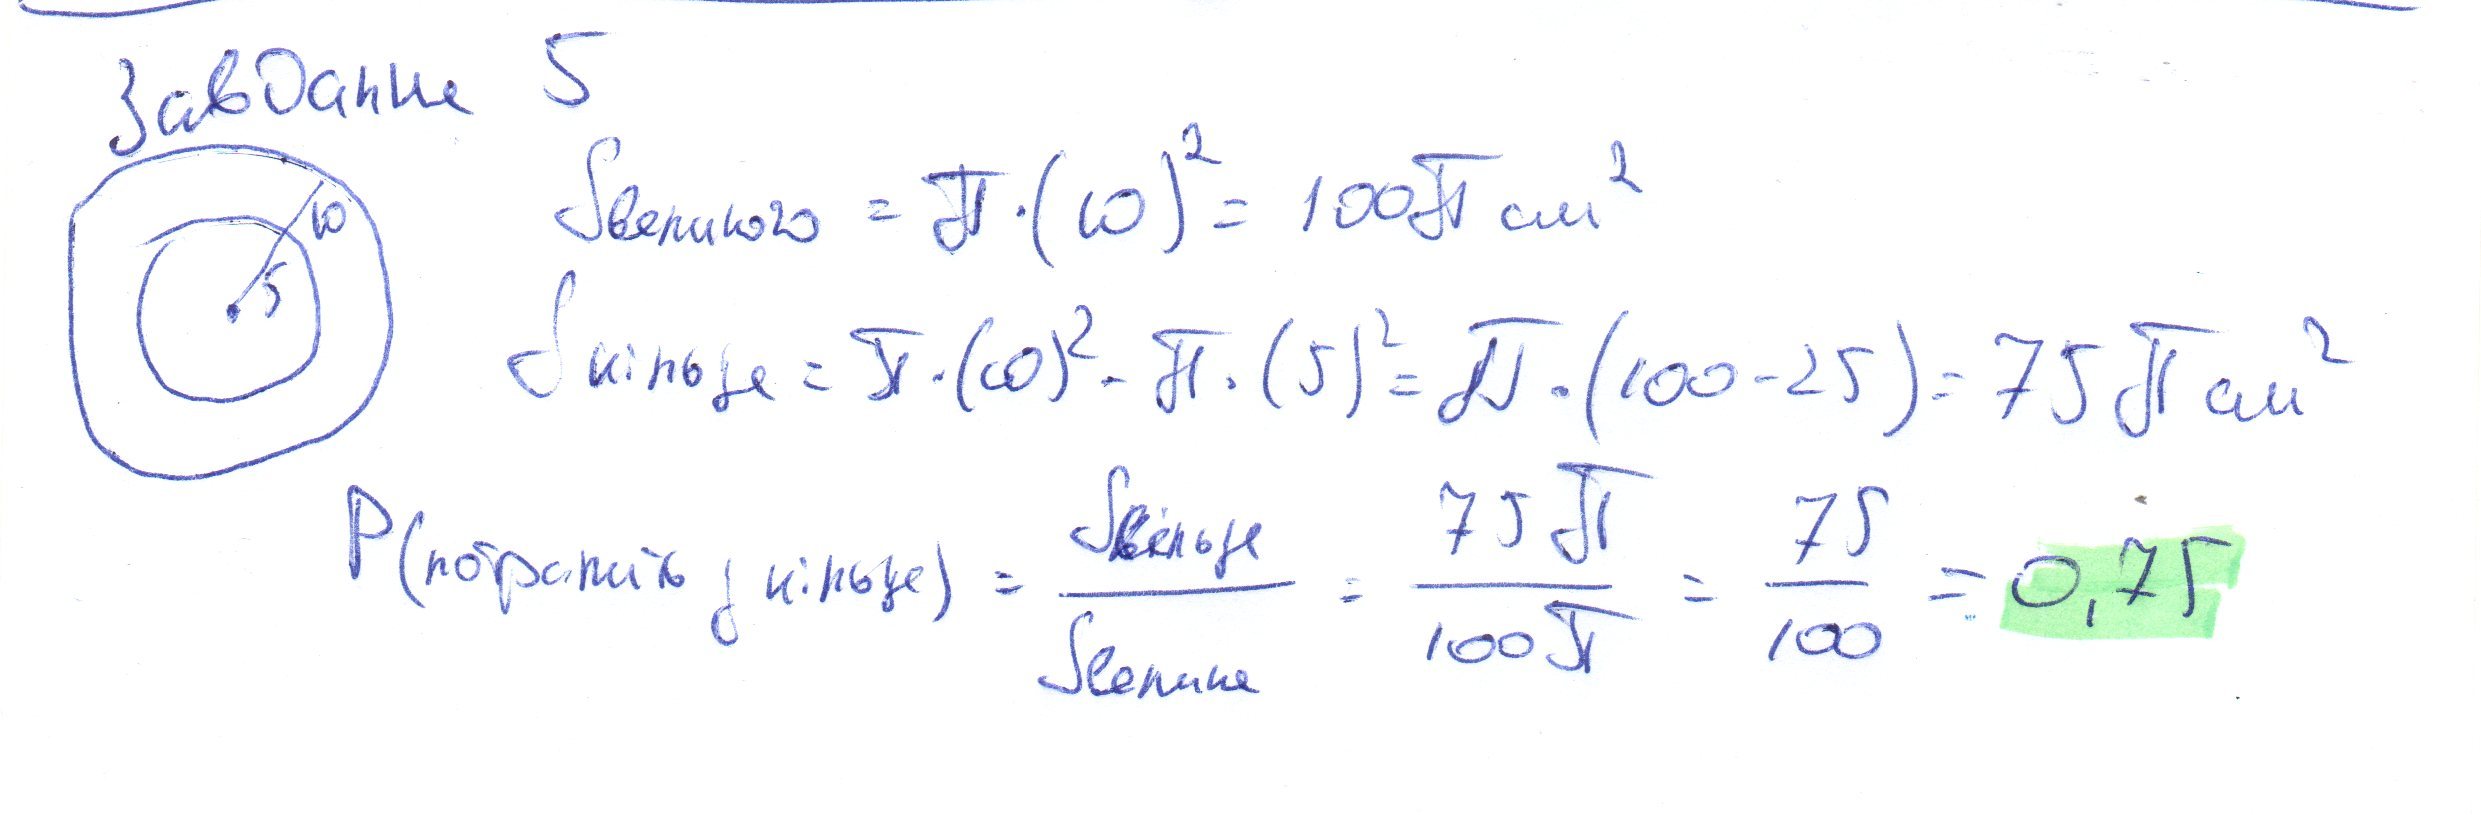 Завдання 5
10
5
Sвеликого = π·(10)² = 100π см²
Sкільце = π·(10)² - π·(5)² = π·(100-25) = 75π см²
P(потрапить у кільце) = Sкільце / Sвелике = 75π / 100π = 75 / 100 = 0,75